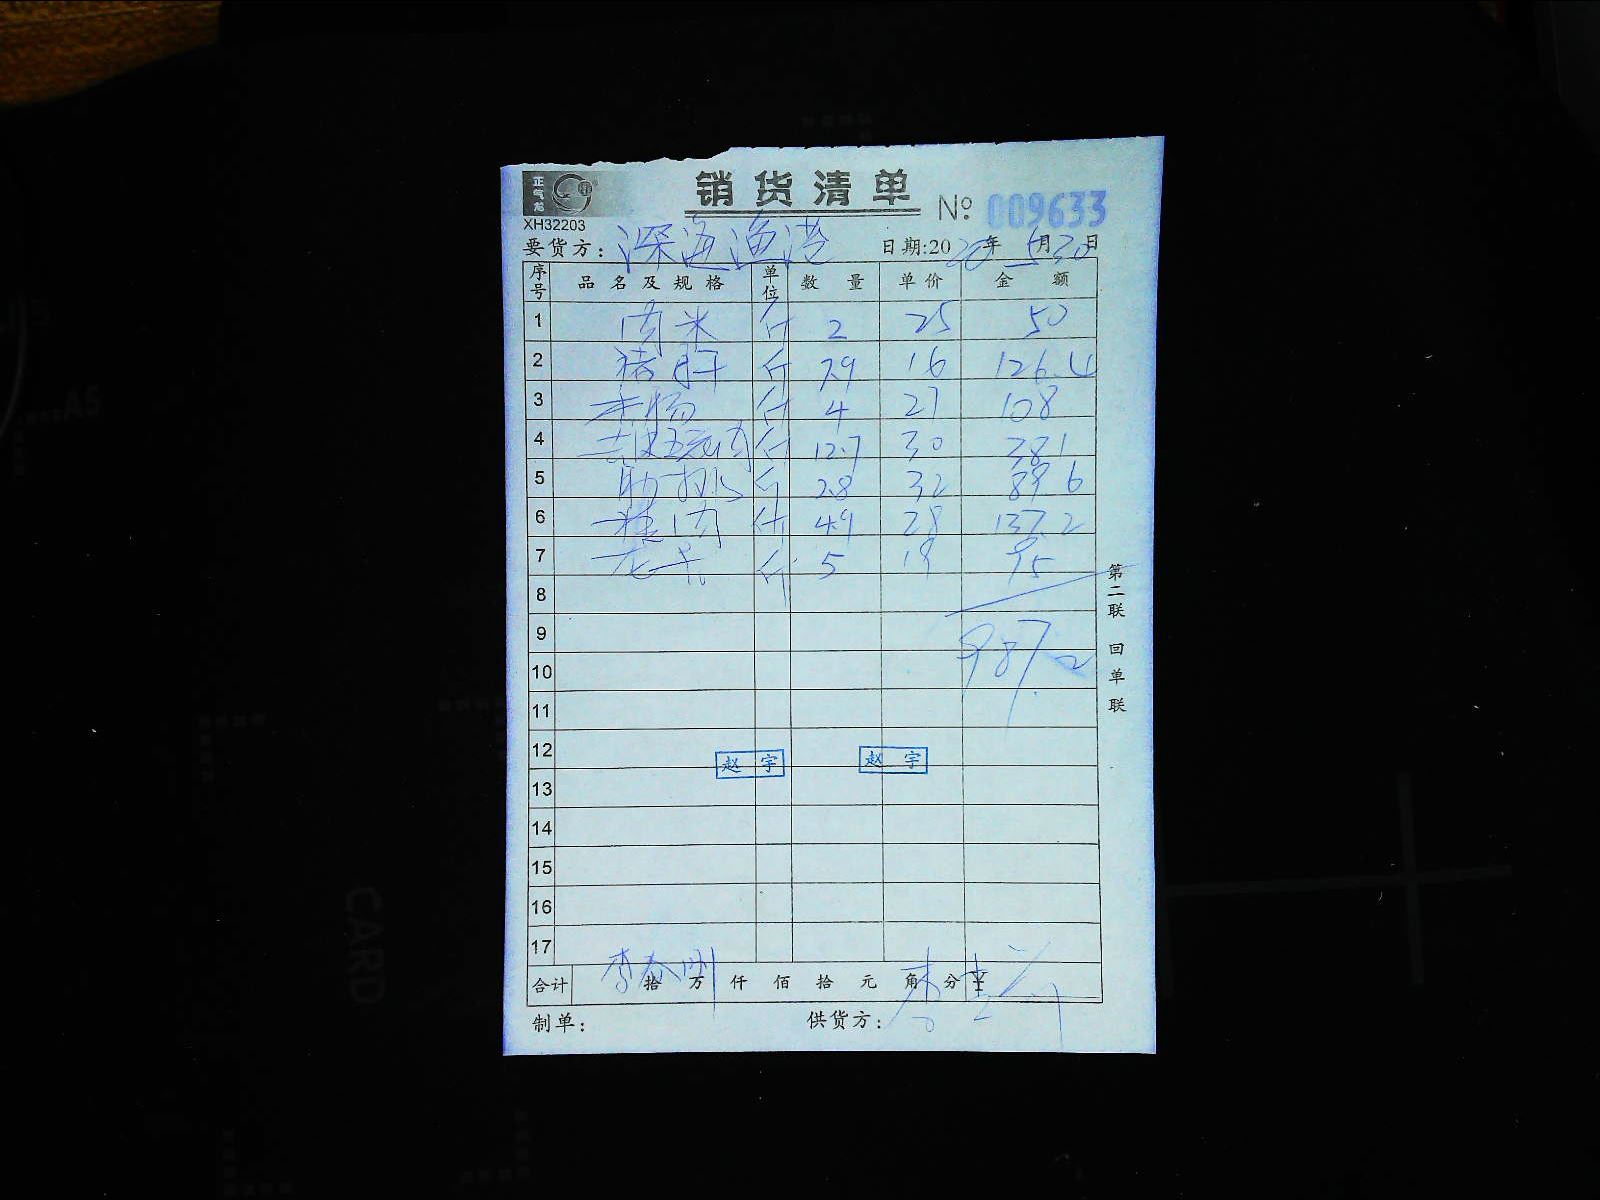 正气龙
销货清单
XH32203
№ 009633
要货方: 深海渔港 日期:2020年5月30日
序号 品名及规格 单位 数量 单价 金额
1 肉米 斤 2 25 50
2 猪肝 斤 7.9 16 126.4
3 斤 4 27 108
4 去皮五花肉 斤 12.7 30 381
5 肋排 斤 2.8 32 89.6
6 斤 4.9 28 137.2
7 斤 5 19 95
8
9 987.2
10
11
12 赵宇 赵宇
13
14
15
16
17
合计 拾 万 仟 佰 拾 元 角 分 ¥
制单: 供货方:
第二联 回单联
A5
CARD